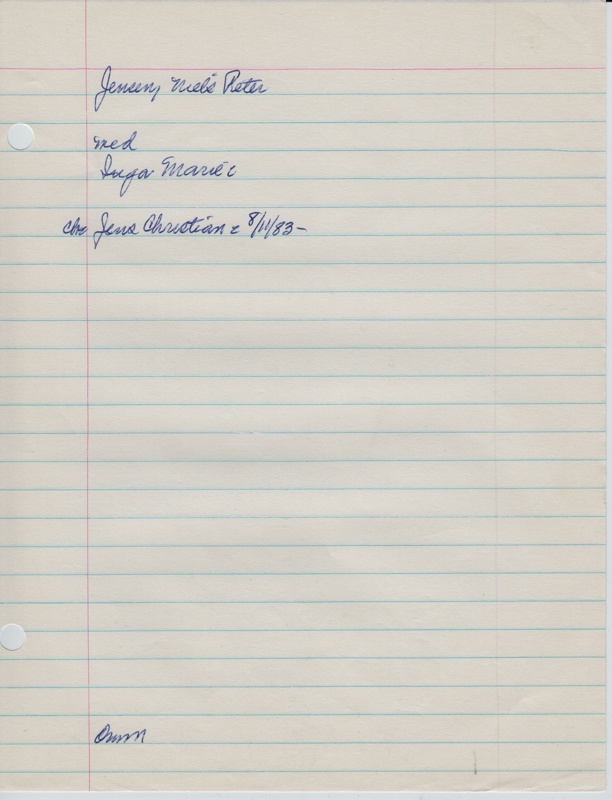 Jensen, Niels Peter
med
Inga Marie
chr Jens Christian 8/11/83-